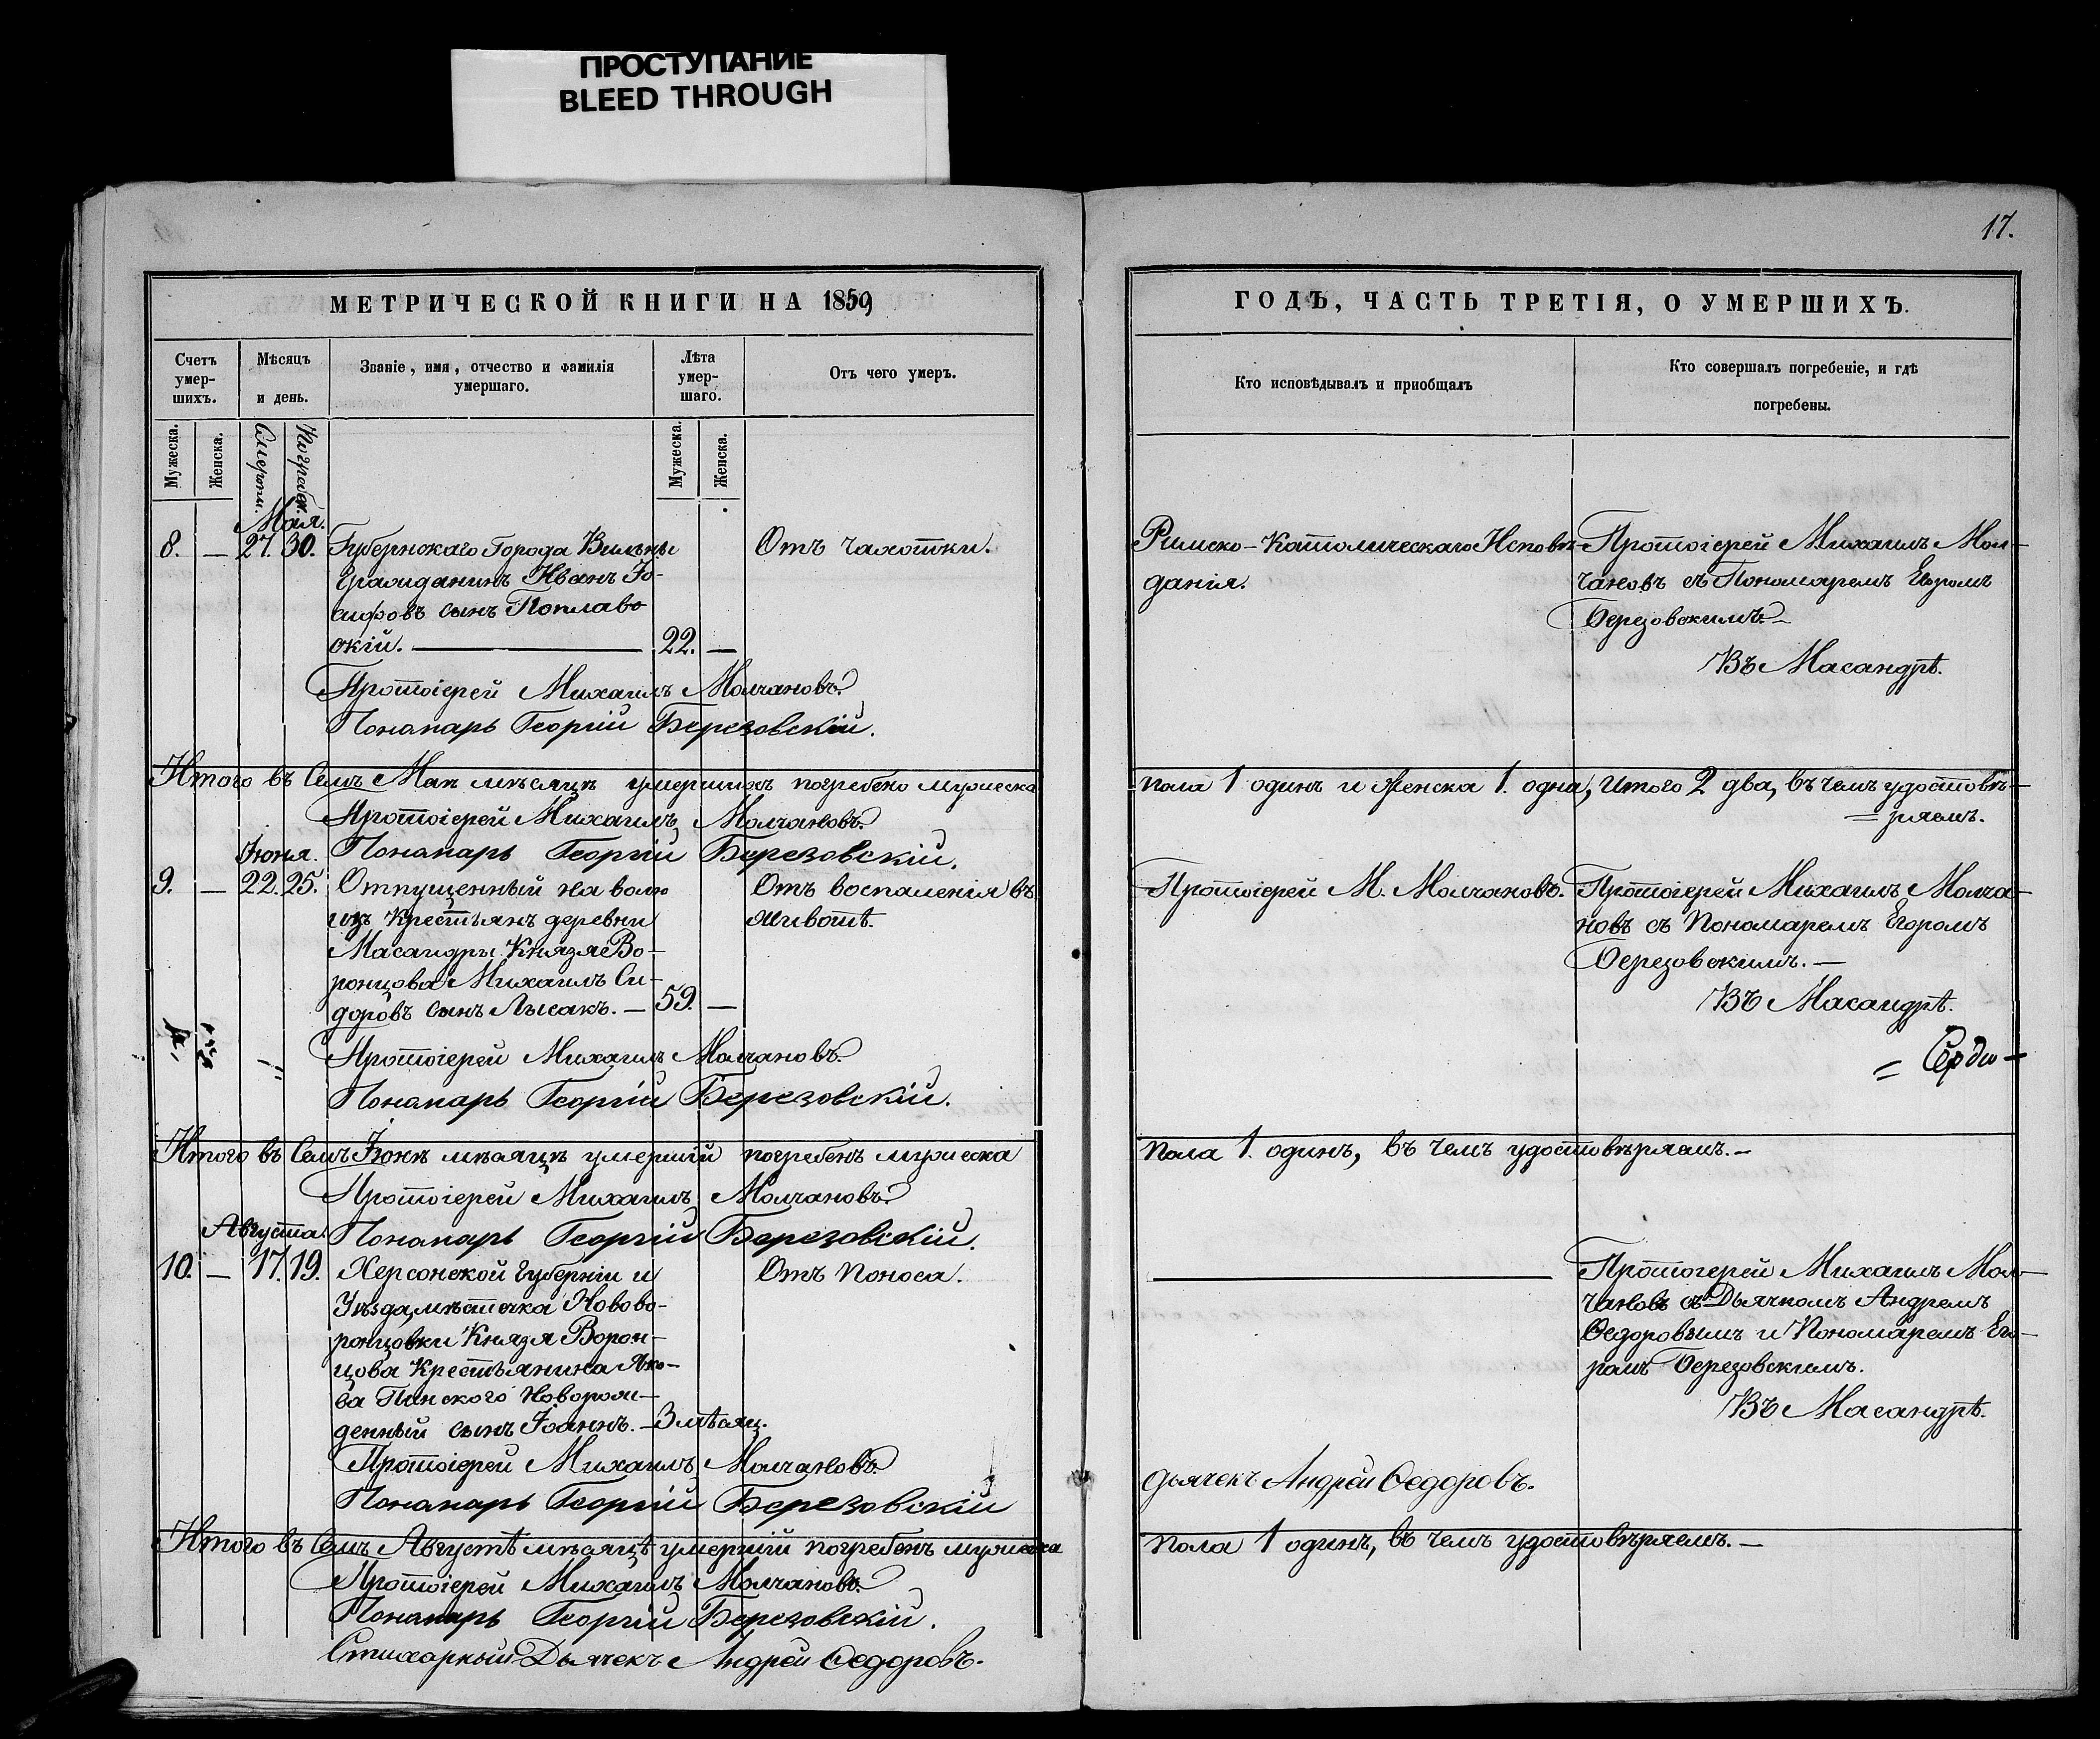 ПРОСТУПАНИЕ
BLEED THROUGH
17.
МЕТРИЧЕСКОЙ КНИГИ НА 1859
Счетъ умер-шихъ.
Мѣсяцъ и день.
Званіе, имя, отчество и фамилія умершаго.
Лѣта умер-шаго.
Отъ чего умеръ.
Мужеска.
Женска.
Смерти.
Погребен.
Мужеска.
Женска.
Мая.
8. — 27. 30. Губернскаго Города Вильны Отъ чахотки.
Гражданинъ Иванъ Іо-
сифовъ сынъ Поплав-
скій. — 22. —
Протоіерей Михаилъ Молчановъ.
Понамарь Георгій Березовскій.
Итого въ семъ Маѣ мѣсяцѣ умершихъ погребено мужеска
Протоіерей Михаилъ Молчановъ.
Іюня. Понамарь Георгій Березовскій.
9. — 22. 25. Отпущенный на волю Отъ воспаленія въ
изъ крестьянъ деревни животѣ.
Масандры Князя Во-
ронцова Михаилъ Си-
доровъ сынъ Лысакъ. — 59. —
Протоіерей Михаилъ Молчановъ.
Понамарь Георгій Березовскій.
Итого въ семъ Іюнѣ мѣсяцѣ умершій погребенъ мужеска
Протоіерей Михаилъ Молчановъ.
Августа. Понамарь Георгій Березовскій.
10. — 17. 19. Херсонской Губерніи и Отъ поноса.
Уѣзда, мѣстечка Новово-
ронцовки Князя Ворон-
цова Крестьянина Яко-
ва Пинского Новорож-
денный сынъ Іоаннъ. — 3 мѣсяц.
Протоіерей Михаилъ Молчановъ.
Понамарь Георгій Березовскій
Итого въ семъ Августѣ мѣсяцѣ умершій погребенъ мужеска
Протоіерей Михаилъ Молчановъ.
Понамарь Георгій Березовскій.
Стихарный Дьячекъ Андрей Ѳедоровъ.
ГОДЪ, ЧАСТЬ ТРЕТІЯ, О УМЕРШИХЪ.
Кто исповѣдывалъ и пріобщалъ
Кто совершалъ погребеніе, и гдѣ
погребены.
Римско-Католическаго Исповѣ- Протоіерей Михаилъ Мол-
данія. чановъ съ Пономаремъ Егоромъ
Березовскимъ. —
Въ Масандрѣ.
пола 1 одинъ и женска 1. одна, Итого 2 два, въ чемъ удостовѣ-
= ряемъ.
Протоіерей М. Молчановъ. Протоіерей Михаилъ Молча-
новъ съ Пономаремъ Егоромъ
Березовскимъ. —
Въ Масандрѣ.
пола 1. одинъ, въ чемъ удостовѣряемъ. —
Протоіерей Михаилъ Мол-
чановъ съ Дьячкомъ Андреемъ
Ѳедоровымъ и Пономаремъ Его-
ромъ Березовскимъ.
Въ Масандрѣ.
Дьячекъ Андрей Ѳедоровъ.
пола 1 одинъ, въ чемъ удостовѣряемъ. —